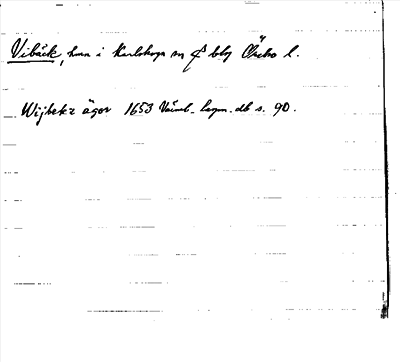 Vibäck, hmn i Karlskoga sn o bbg Örebro l.
Wijbekz ägor 1653 Värml. lagm. db s. 90.